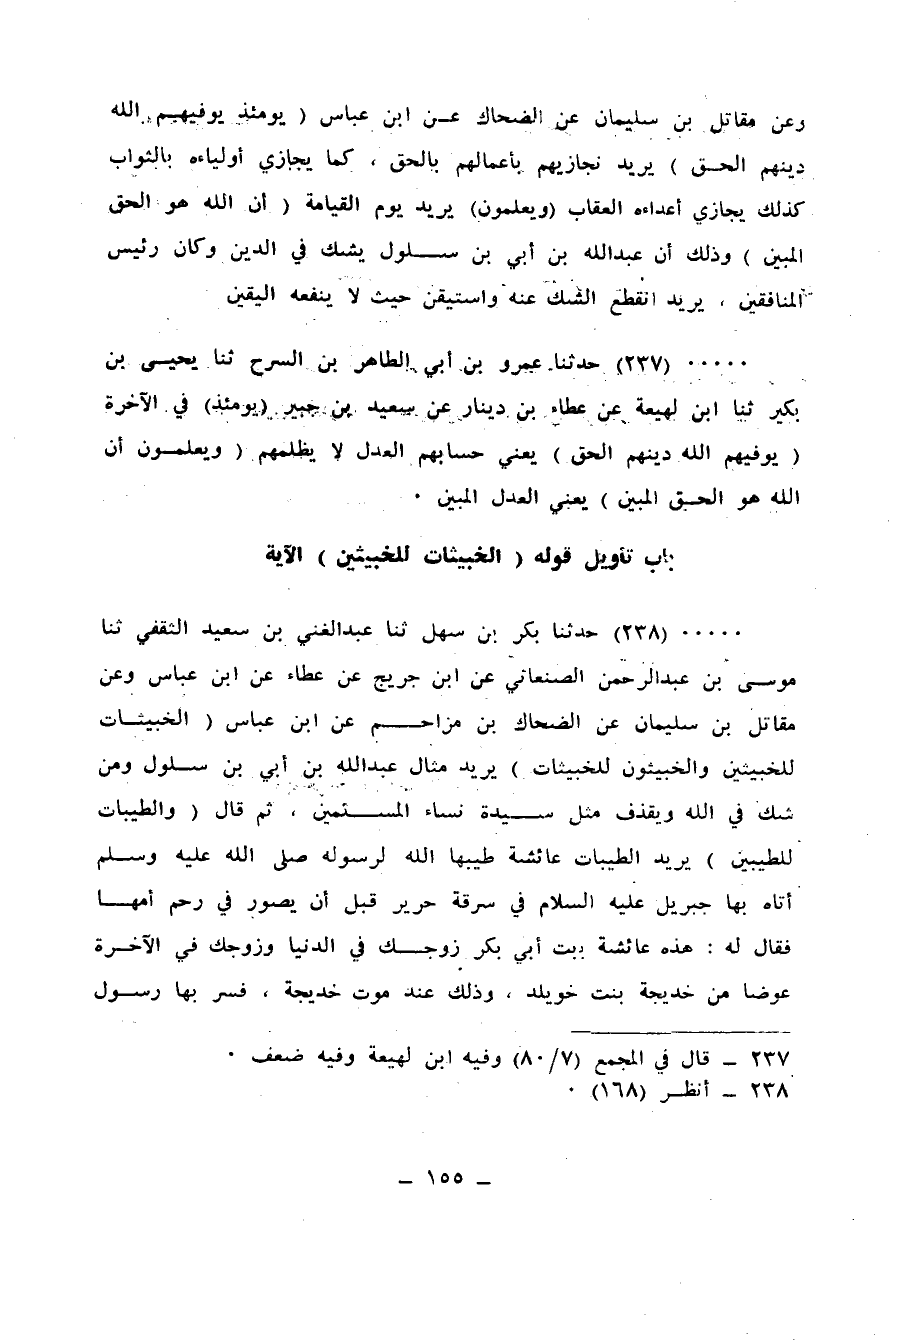 وعن مقاتل بن سليمان عن الضحاك عن ابن عباس ( يومئذ يوفيهم الله
دينهم الحق ) يريد نجازيهم بأعمالهم بالحق ، كما يجازي أولياءه بالثواب
كذلك يجازي أعداءه العقاب (ويعلمون) يريد يوم القيامة ( أن الله هو الحق
المبين ) وذلك أن عبدالله بن أبي بن سلول يشك في الدين وكان رئيس
المنافقين ، يريد انقطع الشك عنه واستيقن حيث لا ينفعه اليقين
..... (٢٣٧) حدثنا عمرو بن أبي الطاهر بن السرح ثنا يحيى بن
بكير ثنا ابن لهيعة عن عطاء بن دينار عن سعيد بن جبير (يومئذ) في الآخرة
( يوفيهم الله دينهم الحق ) يعني حسابهم العدل لا يظلمهم ( ويعلمون أن
الله هو الحق المبين ) يعني العدل المبين .
باب تأويل قوله ( الخبيثات للخبيثين ) الآية
..... (٢٣٨) حدثنا بكر بن سهل ثنا عبدالغني بن سعيد الثقفي ثنا
موسى بن عبدالرحمن الصنعاني عن ابن جريج عن عطاء عن ابن عباس وعن
مقاتل بن سليمان عن الضحاك بن مزاحم عن ابن عباس ( الخبيثات
للخبيثين والخبيثون للخبيثات ) يريد مثال عبدالله بن أبي بن سلول ومن
شك في الله ويقذف مثل سيدة نساء المسلمين ، ثم قال ( والطيبات
للطيبين ) يريد الطيبات عائشة طيبها الله لرسوله صلى الله عليه وسلم
أتاه بها جبريل عليه السلام في سرقة حرير قبل أن يصور في رحم أمها
فقال له : هذه عائشة بنت أبي بكر زوجك في الدنيا وزوجك في الآخرة
عوضا من خديجة بنت خويلد ، وذلك عند موت خديجة ، فسر بها رسول
٢٣٧ ـ قال في المجمع (٨٠/٧) وفيه ابن لهيعة وفيه ضعف .
٢٣٨ ـ أنظر (١٦٨) .
ـ ١٥٥ ـ